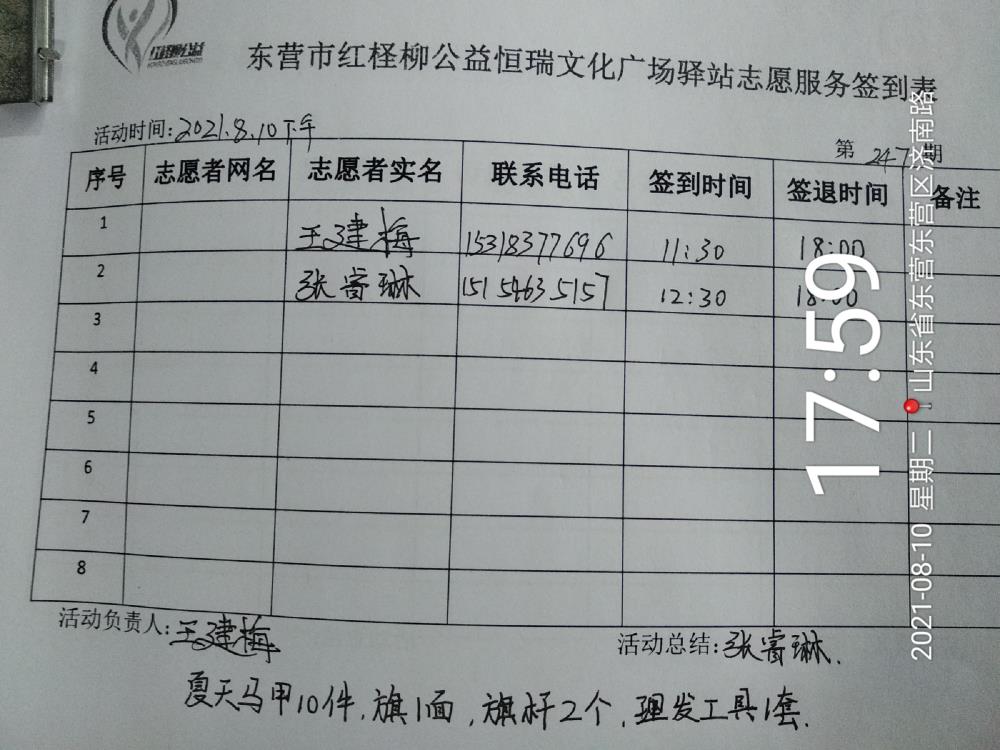 东营市红柽柳公益恒瑞文化广场驿站志愿服务签到表
活动时间:2021.8.10下午
第 247 期
序号 志愿者网名 志愿者实名 联系电话 签到时间 签退时间 备注
1 王建梅 15318377696 11:30 18:00
2 张睿琳 15154635157 12:30 18:00
3
4
5
6
7
8
活动负责人:王建梅
活动总结:张睿琳.
夏天马甲10件,旗1面,旗杆2个,理发工具1套.
17:59
2021-08-10 星期二 山东省东营市东营区济南路